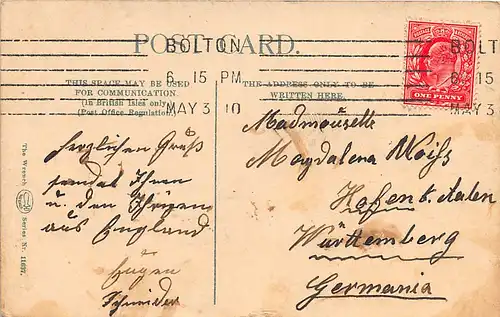 POST CARD.
BOLTON
6. 15 PM
MAY 3 10
BOLT
6. 15
MAY 3
ONE PENNY
THIS SPACE MAY BE USED
FOR COMMUNICATION
(In British Isles only
(Post Office Regulation).
THE ADDRESS ONLY TO BE
WRITTEN HERE.
The Wrench
Series Nr. 11627.
herzlichen Gruß
sendet Ihnen
u. den Ihrigen
aus England
Eugen
Schneider
Madmouselle
Magdalena Weiß
Hofen b. Aalen
Württemberg
Germania